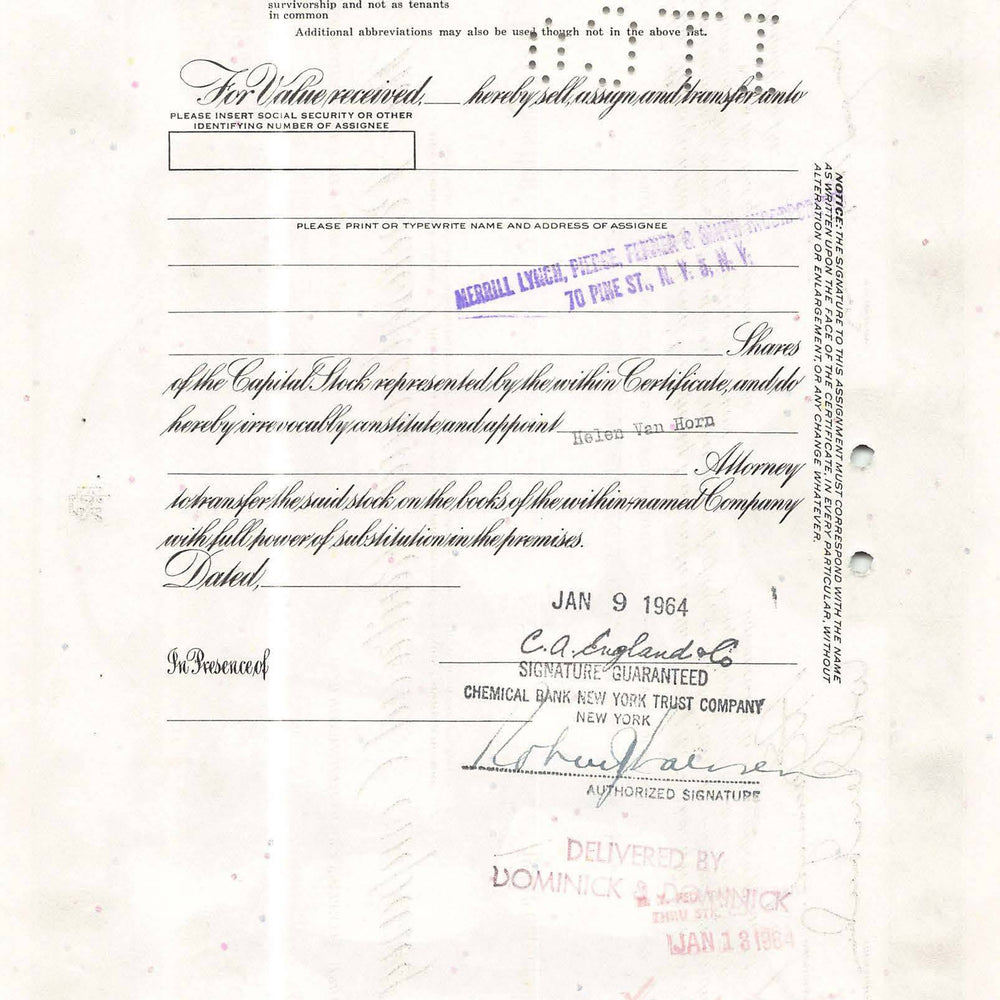 survivorship and not as tenants
in common
Additional abbreviations may also be used though not in the above list.
For Value received, hereby sell, assign and transfer unto
PLEASE INSERT SOCIAL SECURITY OR OTHER
IDENTIFYING NUMBER OF ASSIGNEE
PLEASE PRINT OR TYPEWRITE NAME AND ADDRESS OF ASSIGNEE
MERRILL LYNCH, PIERCE, FENNER & SMITH
70 PINE ST., N. Y. 5, N. Y.
Shares
of the Capital Stock represented by the within Certificate, and do
hereby irrevocably constitute and appoint Helen Van Horn
Attorney
to transfer the said stock on the books of the within-named Company
with full power of substitution in the premises.
Dated,
JAN 9 1964
C. A. England & Co
In Presence of
SIGNATURE GUARANTEED
CHEMICAL BANK NEW YORK TRUST COMPANY
NEW YORK
AUTHORIZED SIGNATURE
DELIVERED BY
DOMINICK & DOMINICK
THRU
JAN 13 1964
NOTICE: THE SIGNATURE TO THIS ASSIGNMENT MUST CORRESPOND WITH THE NAME
AS WRITTEN UPON THE FACE OF THE CERTIFICATE, IN EVERY PARTICULAR, WITHOUT
ALTERATION OR ENLARGEMENT, OR ANY CHANGE WHATEVER.